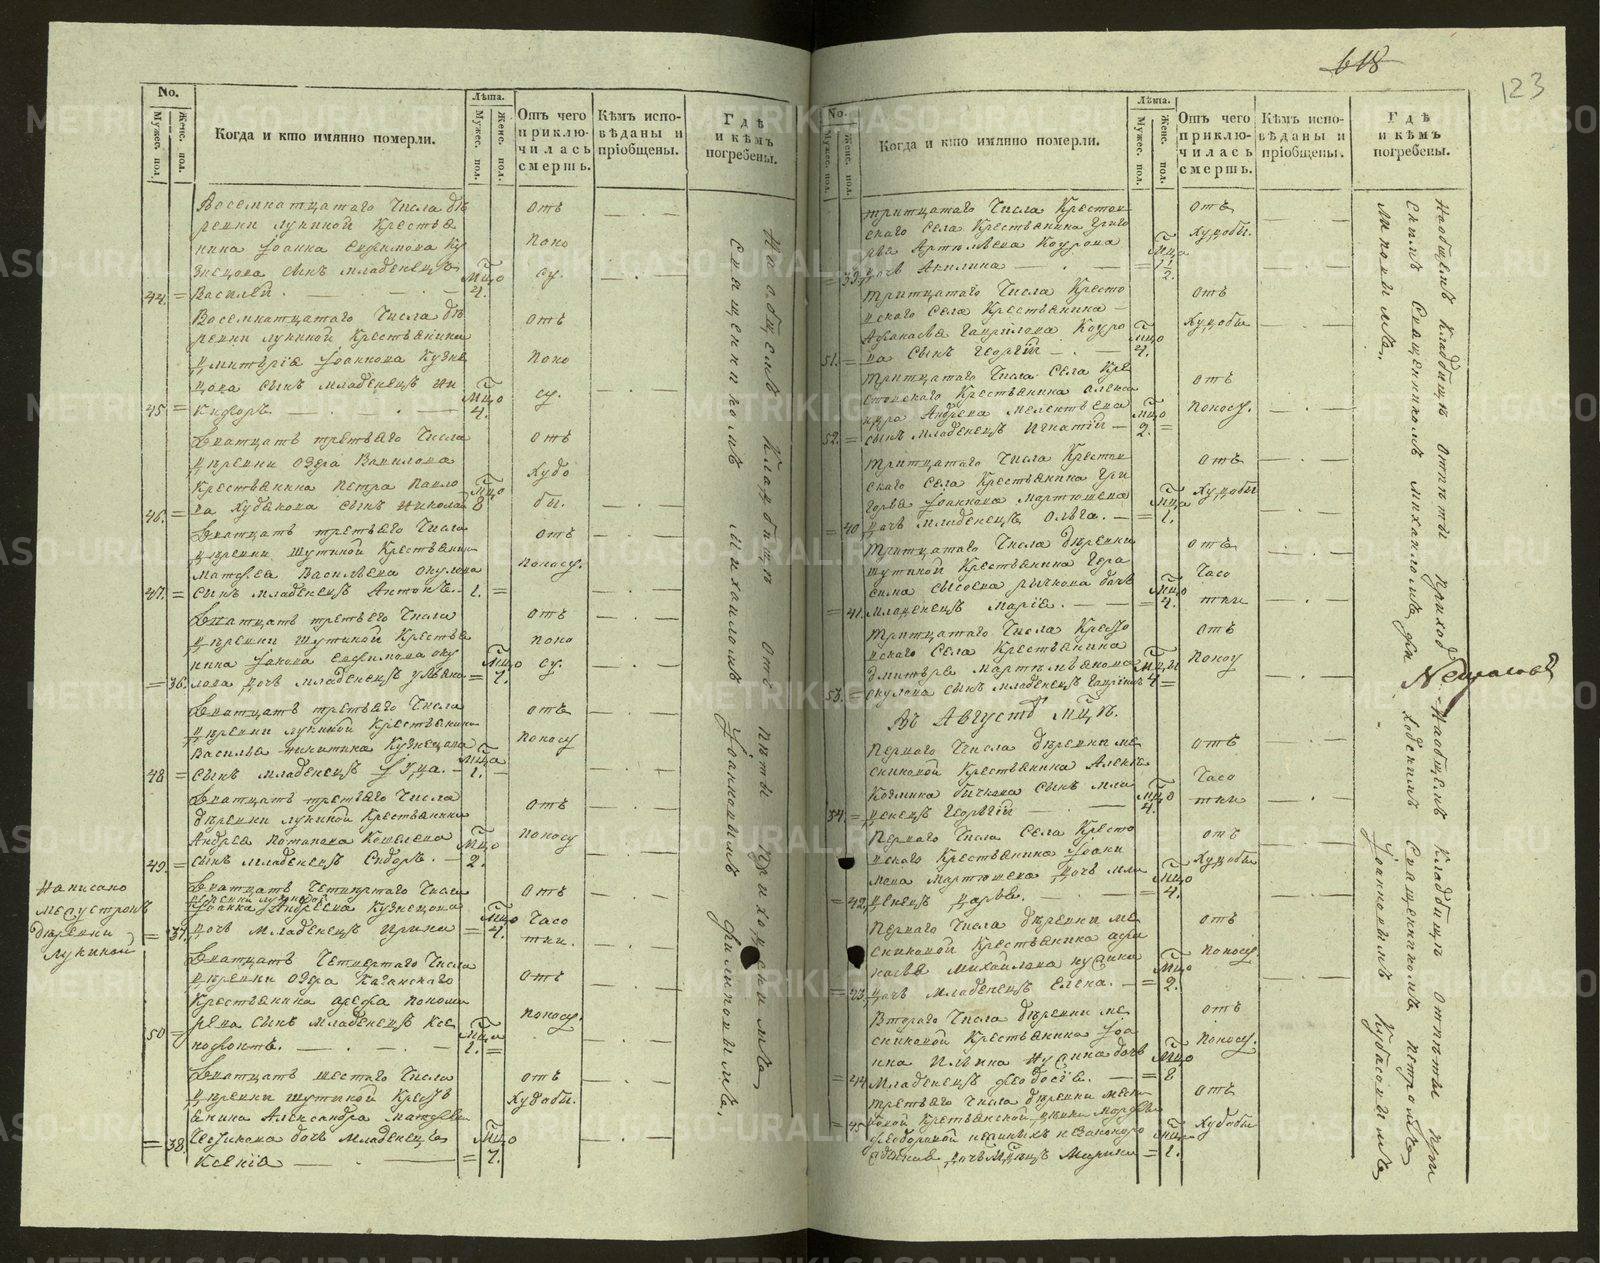 No.
Мужес. пол.
Женс. пол.
Когда и кто имянно померли.
Лѣта.
Мужес. пол.
Женс. пол.
Отъ чего приклю-чилась смерть.
Кѣмъ испо-вѣданы и пріобщены.
Гдѣ и кѣмъ погребены.
Восемнатцатаго Числа дѣ
ревни лукиной Крестья
нина Іоанна Ку
знецова сынъ младенецъ
44. = Василей. Мцо 4.
отъ
поно
су.
Восемнатцатаго Числа дѣ
ревни лукиной Крестьянина
Димитрія Іоаннова Кузне
цова сынъ младенецъ Ни
45 = Кифоръ. Мцо 4.
отъ
поно
су.
Дватцать третьяго Числа
деревни озера Вавилова
Крестьянина петра Павло
46. = ва Худякова сынъ Николай Мцо 8
отъ
худо
бы.
Дватцать третьяго Числа
деревни шутиной Крестьянина
матфея Васильева окулова
47. = сынъ младенецъ Антонъ. 1. =
отъ
поносу.
Дватцать третьяго Числа
деревни шутиной Крестья
нина Іакова оку
= 36. лова дочь младенецъ = Мцо 7.
отъ
поно
су.
Дватцать третьяго Числа
деревни лукиной Крестьянина
Василья никитина Кузнецова
48 = сынъ младенецъ Мца 1.
отъ
поносу
Дватцать третьяго Числа
деревни лукиной Крестьянина
Андрея потапова Кошелева
49. = сынъ младенецъ Сидоръ. Мцо 2.
отъ
поносу
Написано
деревни
лукиной
Дватцать Четвертаго Числа
деревни лукиной
Іоанна Андреева Кузнецова
= 37. дочь младенецъ Ирина = Мцо 4.
отъ
Часо
тки.
Дватцать Четвертаго Числа
деревни озера
Крестьянина
рева сынъ младенецъ Ксе
50 = нофонтъ. Мца 1. =
отъ
поносу.
Дватцать шестаго Числа
деревни шутиной Крестья
янина Александра матфеева
= 38. дочь младенецъ
Ксенія = Мцо 7.
отъ
худобы.
На общемъ Кладбищѣ отпѣты Приходскимъ
священникомъ михаиломъ Іоанновымъ Филиповымъ.
618
123
No.
Мужес. пол.
Женс. пол.
Когда и кто имянно померли.
Лѣта.
Мужес. пол.
Женс. пол.
Отъ чего приклю-чилась смерть.
Кѣмъ испо-вѣданы и пріобщены.
Гдѣ и кѣмъ погребены.
тритцатаго Числа Крестов
скаго Села Крестьянина Григо
рья Артемьева Коурова
= 39. дочь Акилина = Мца 1 1/2.
отъ
худобы.
тритцатаго Числа Кресто
вскаго Села Крестьянина
Афанасья Гаврилова Коуро
51. = ва Сынъ Георгій Мцо 4.
отъ
Худобы
тритцатаго Числа Села Кре
стовскаго Крестьянина Алекса
ндра Андреева мелентьева
52. = сынъ младенецъ Игнатій Мцо 2. =
отъ
поносу.
тритцатаго Числа Крестов
скаго Села Крестьянина Гри
горья Іоаннова мартюшева
= 40 дочь младенецъ Ольга. = Мца 1.
отъ
Худобы
тритцатаго Числа деревни
шутиной Крестьянина Гера
сима Сысоева рычкова дочь
= 41. младенецъ марія. = Мцо 4.
отъ
Часо
тки
тритцатаго Числа Кресто
вскаго Села Крестьянина
Дмитрья мартемьянова
53. = окулова сынъ младенецъ Гаврилъ 4 =
отъ
поносу
Въ Августѣ Мцѣ.
перваго Числа деревни ме
сниковой Крестьянина Алексѣя
Козмина бычкова сынъ мла
54. = денецъ Георгій Мцо 4.
отъ
Часо
тки
перваго Числа Села Кресто
вскаго Крестьянина Іоанн
мартюшева дочь мла
= 42. денецъ дарья. = Мцо 4.
отъ
Худобы
перваго Числа деревни ме
сниковой Крестьянина афа
насья михайлова
= 43. дочь младенецъ Елена. = Мцо 2.
отъ
поносу
Втораго Числа деревни ме
сниковой Крестьянина Іоа
нна Ильина дочь
= 44 младенецъ феодосія. = Мцо 8
отъ
поносу.
третьяго Числа деревни месни
ковой Крестьянской девки марфы
= 45. феодоровой незаконоро
дочь марина = Мцо 1.
отъ
Худобы
На общемъ Кладбищѣ отпѣты приход
скимъ Священникомъ михаиломъ Филиповымъ.
На общемъ Кладбищѣ отпѣты при
ходскимъ Священникомъ петромъ
Іоанновымъ Кубасовымъ